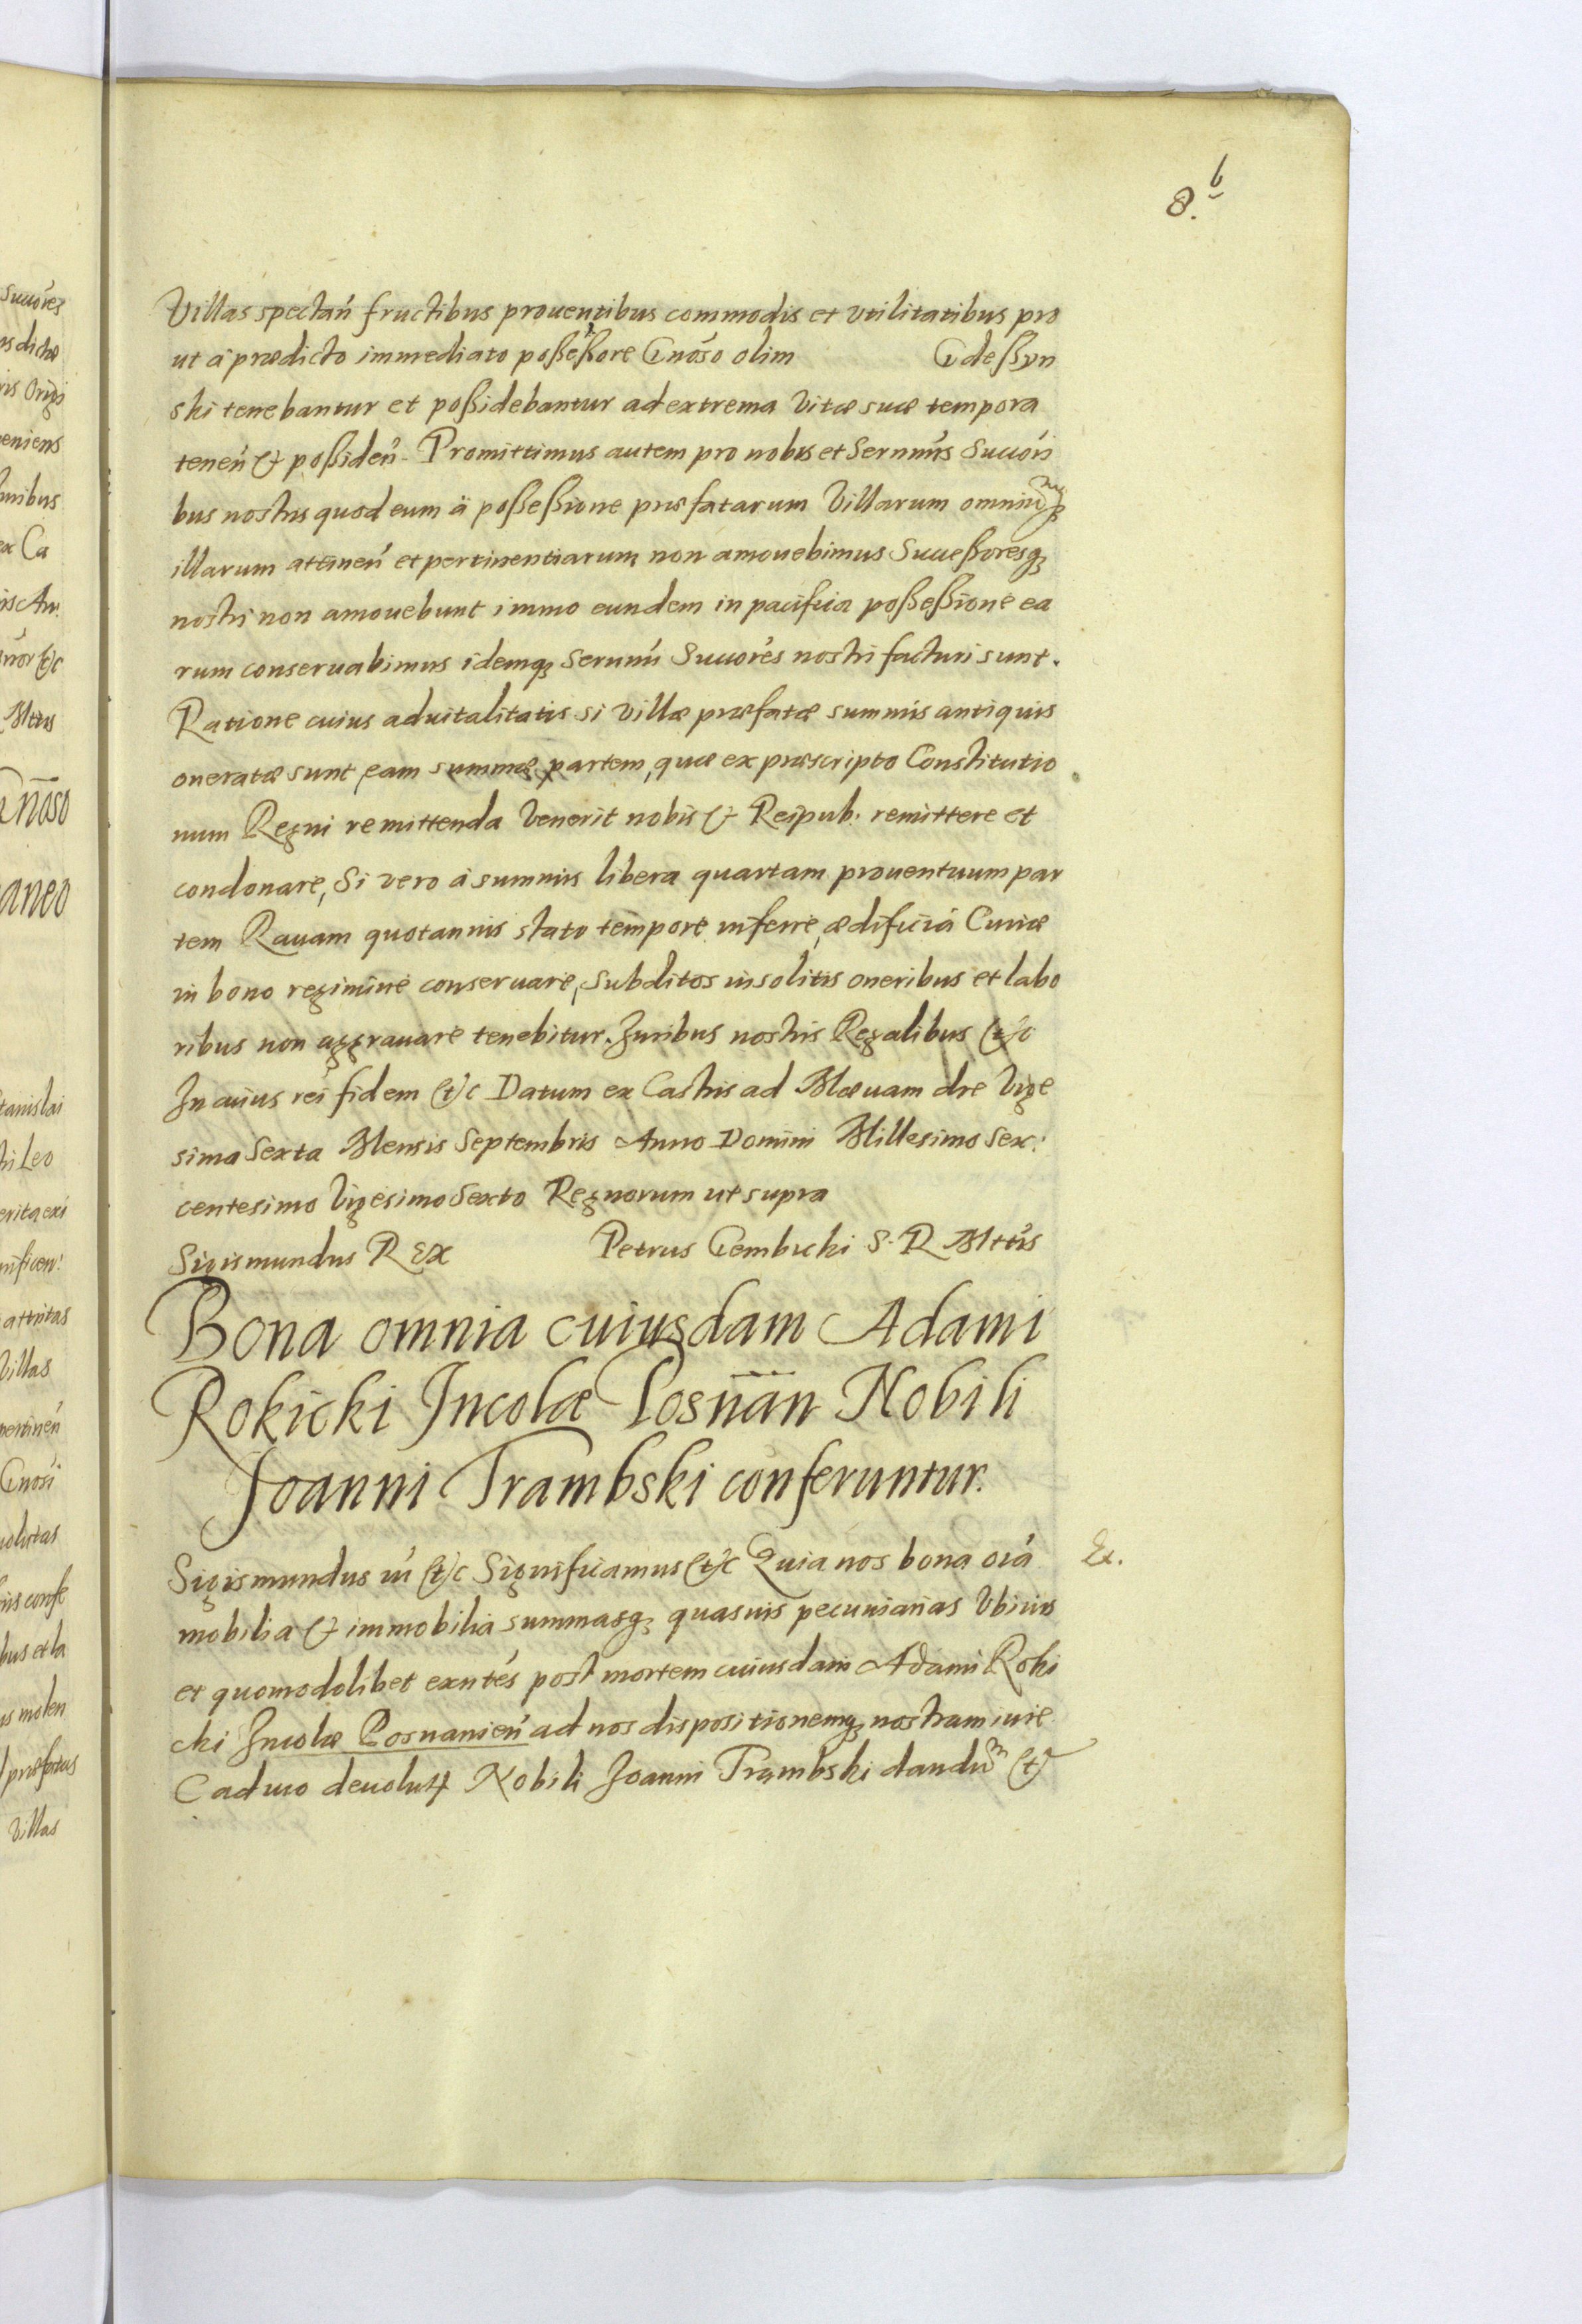 8.b
Villas spectań fructibus prouentibus commodis et vtilitatibus pro
ut á prædicto immediato poßeßore Gnóso olim Gdeßyn
ski tenebantur et poßidebantur ad extrema Vitæ suæ tempora
teneń & poßideń. Promittimus autem pro nobis et Sernmis Succori
bus nostris quod eum á poßeßione præfatarum Villarum omniumq3
illarum attineń et pertinentiarum non amouebimus Succeßoresq3
nostri non amouebunt immo eundem in pacifica poßeßione ea
rum conseruabimus idemq3 Sernmi Succores nostri facturi sunt.
Ratione cuius aduitalitatis si Villæ præfatæ summis antiquis
oneratæ sunt, eam summæ partem, quæ ex præscripto Constitutio
num Regni remittenda Venerit nobis & Reipub. remittere et
condonare, Si vero á summis libera quartam prouentuum par
tem Rauam quotannis stato tempore inferre, ædificia Curiæ
in bono regimine conseruare, Subditos insolitis oneribus et labo
ribus non aggrauare tenebitur. Iuribus nostris Regalibus &c
In cuius rei fidem &c Datum ex Castris ad Mæuam die Vige
sima Sexta Mensis Septembris Anno Domini Millesimo Sex:
centesimo Vigesimo Sexto Regnorum ut supra
Sigismundus REX Petrus Gembicki S. R. Mttis
Bona omnia cuiusdam Adami
Rokicki Incolæ Posnan Nobili
Joanni Trambski conferuntur.
Sigismundus III &c Significamus &c Quia nos bona oia Ex.
mobilia & immobilia summasq3 quasuis pecuniarias Vbiuis
et quomodolibet exntes post mortem cuiusdam Adami Roki
cki Incolæ Posnanień ad nos dispositionemq3 nostram iure
Caduco deuoluta Nobili Joanni Trambski dandum &